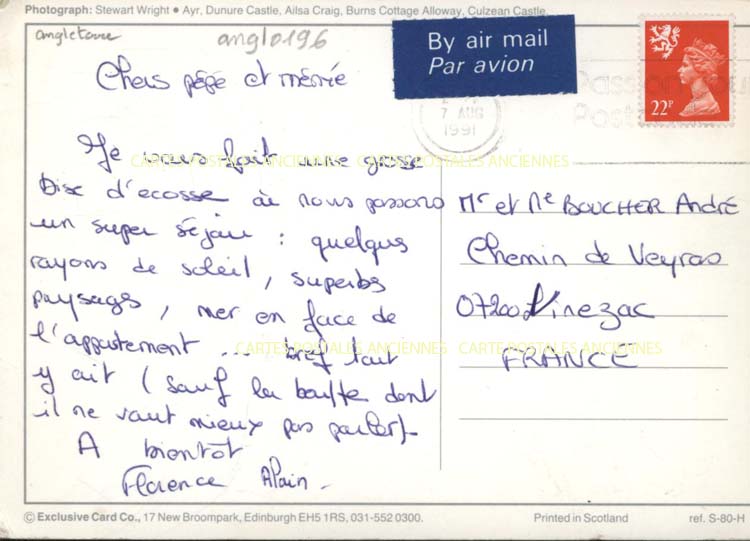 Photograph: Stewart Wright • Ayr, Dunure Castle, Ailsa Craig, Burns Cottage Alloway, Culzean Castle.
angleterre
anglo196
By air mail
Par avion
7 AUG
1991
22P
Chers pépé et mémé
Je vous fait une grosse
CARTES POSTALES ANCIENNES CARTE POSTALES ANCIENNES
bise d'ecosse où nous passons
un super séjour : quelques
rayons de soleil, superbes
paysages, mer en face de
l'appartement ... bref tout
CARTES POSTALES ANCIENNES CARTE POSTALES ANCIENNES
y ait (sauf la bouffe dont
il ne vaut mieux pas parler)
A bientôt
Florence Alain -
Mr et Me BOUCHER André
Chemin de Veyras
07200 Vinezac
FRANCE
© Exclusive Card Co., 17 New Broompark, Edinburgh EH5 1RS, 031-552 0300.
Printed in Scotland
ref. S-80-H